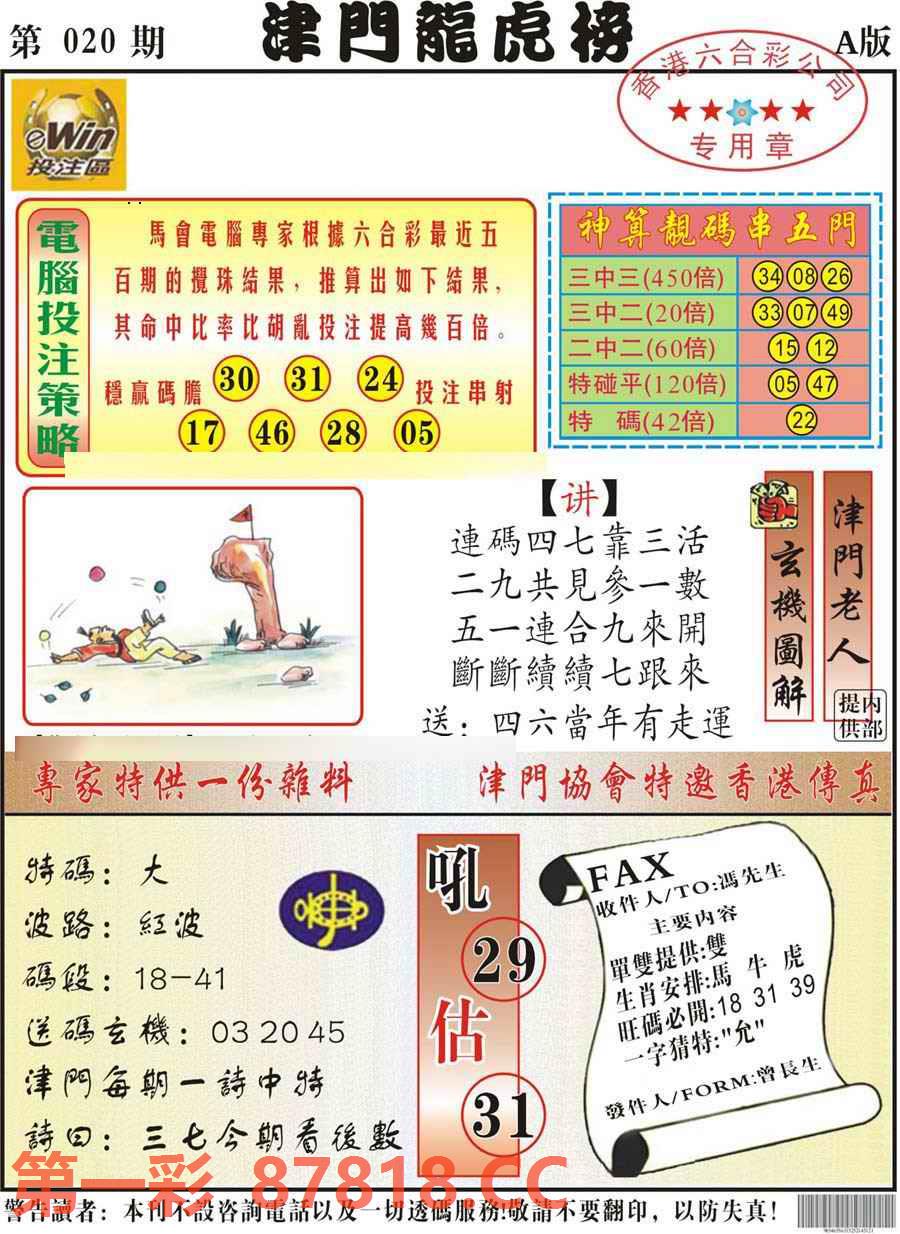 第 020 期
津門龍虎榜
A版
香港六合彩公司
专用章
eWin
投注區
電腦投注策略
馬會電腦專家根據六合彩最近五
百期的攪珠結果，推算出如下結果，
其命中比率比胡亂投注提高幾百倍。
穩贏碼膽 30 31 24 投注串射
17 46 28 05
神算靚碼串五門
三中三(450倍) 34 08 26
三中二(20倍) 33 07 49
二中二(60倍) 15 12
特碰平(120倍) 05 47
特 碼(42倍) 22
【讲】
連碼四七靠三活
二九共見參一數
五一連合九來開
斷斷續續七跟來
送：四六當年有走運
玄機圖解
津門老人
内部提供
專家特供一份雜料
津門協會特邀香港傳真
特碼：大
波路：紅波
碼段：18-41
送碼玄機：03 20 45
津門每期一詩中特
詩曰：三七今期看後數
吼
29
估
31
FAX
收件人/TO:馮先生
主要内容
單雙提供:雙
生肖安排:馬 牛 虎
旺碼必開:18 31 39
一字猜特:"允"
發件人/FORM:曾長生
第一彩 87818.CC
警告讀者：本刊不設咨詢電話以及一切透碼服務!敬請不要翻印，以防失真!